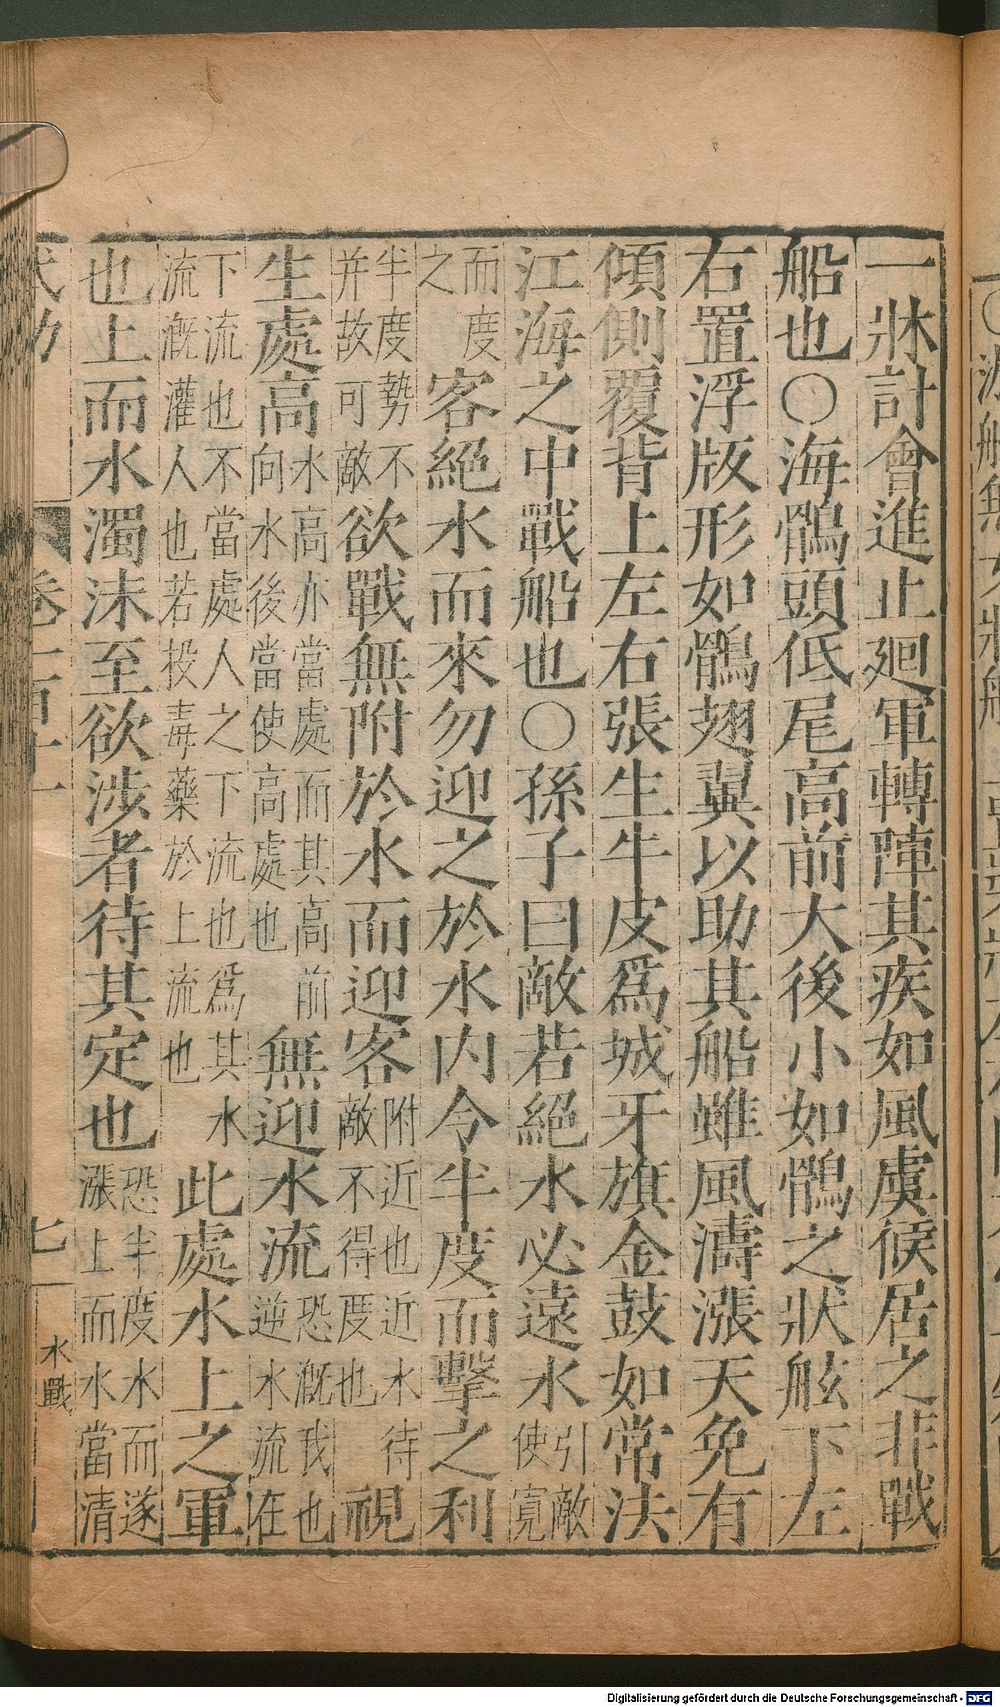 一牀計會進止廻軍轉陣其疾如風虞候居之非戰
船也○海鶻頭低尾高前大後小如鶻之狀舷下左
右置浮版形如鶻翅翼以助其船雖風濤漲天免有
傾側覆背上左右張生牛皮爲城牙旗金鼓如常法
江海之中戰船也○孫子曰敵若絕水必遠水引敵使寬
而度之客絕水而來勿迎之於水内令半度而擊之利
半度勢不并故可敵欲戰無附於水而迎客附近也近水待敵不得度也視
生處高水高亦當處而其高前向水後當使高處也無迎水流恐溉我也逆水流在
下流也不當處人之下流也爲其水流溉灌人也若投毒藥於上流也此處水上之軍
也上而水濁沫至欲涉者待其定也恐半度水而遂漲上而水當清
卷一百二十
七
水戰
Digitalisierung gefördert durch die Deutsche Forschungsgemeinschaft - DFG